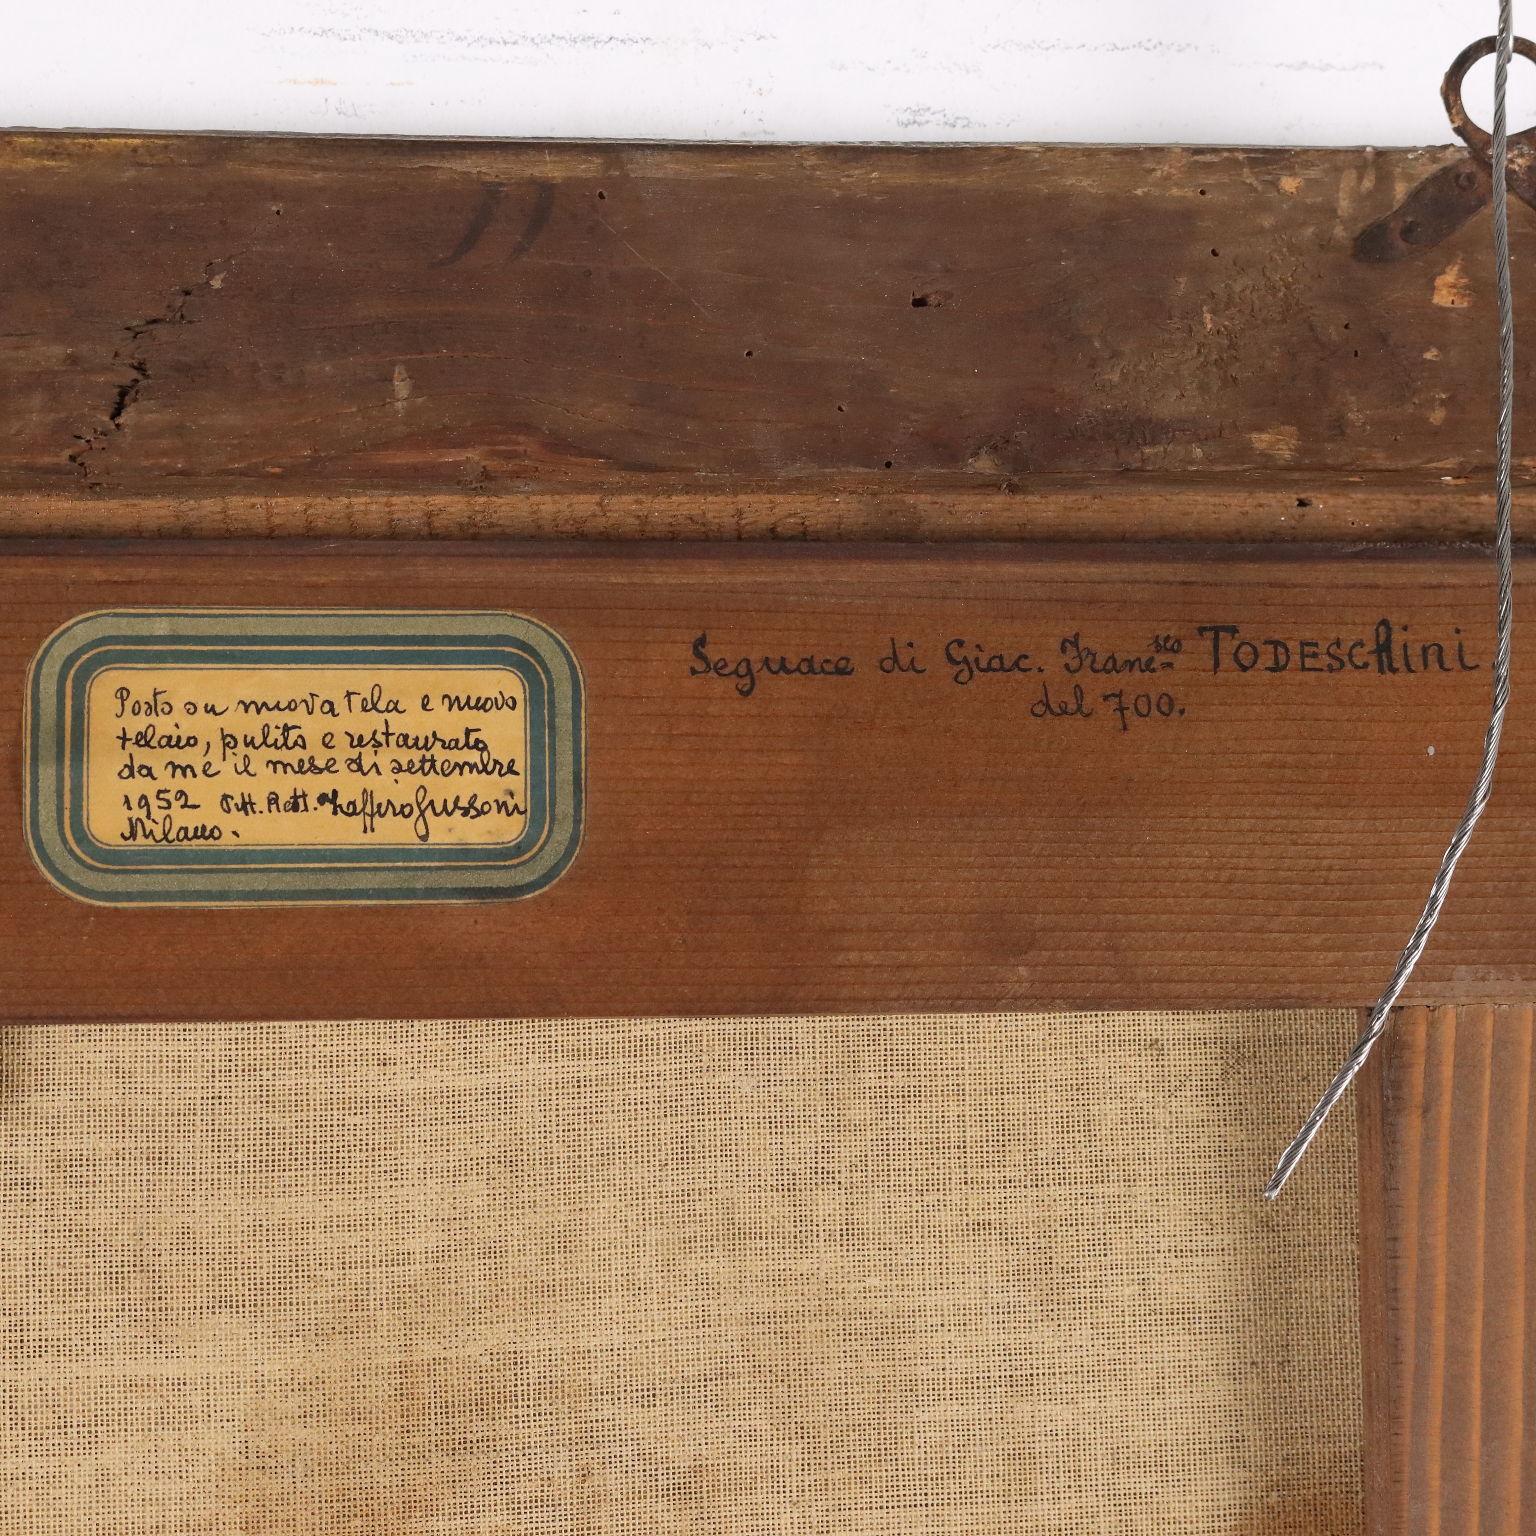 Posto su nuova tela e nuovo
telaio, pulito e restaurato
da me il mese di settembre
1952 Pitt. Rest. Zaffiro Gussoni
Milano.
Seguace di Giac. Franc=sco TODESChini.
del 700.